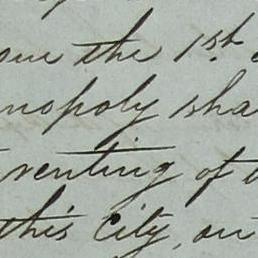 the 1st
nopoly sha
renting of
this City, on